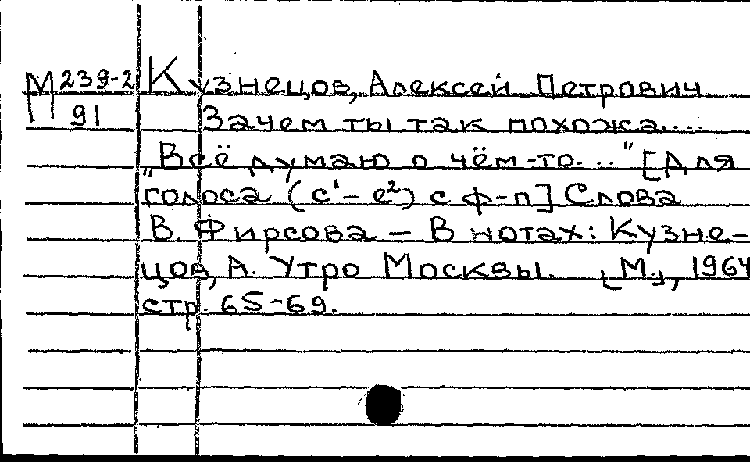 М 239-2 Кузнецов, Алексей Петрович
91 Зачем ты так похожа....
„Всё думаю о чём-то...." [Для
голоса (c¹-e²) с ф-п] Слова
В. Фирсова - В нотах: Кузне-
цов, А. Утро Москвы. [М.], 1964
стр. 65-69.